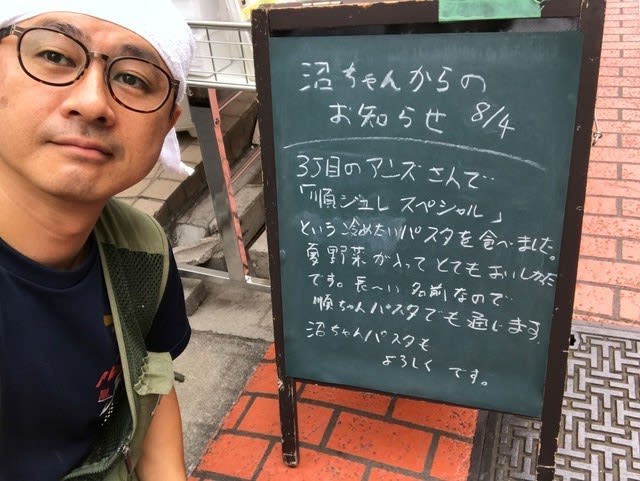 沼ちゃんからの
お知らせ 8/4
3丁目のアニズさんで
「順ジュレ スペシャル」
という冷めたいパスタを食べました。
夏野菜が入ってとてもおいしかった
です。長〜い名前なので
順ちゃんパスタでも通じます
沼ちゃんパスタも
よろしくです。